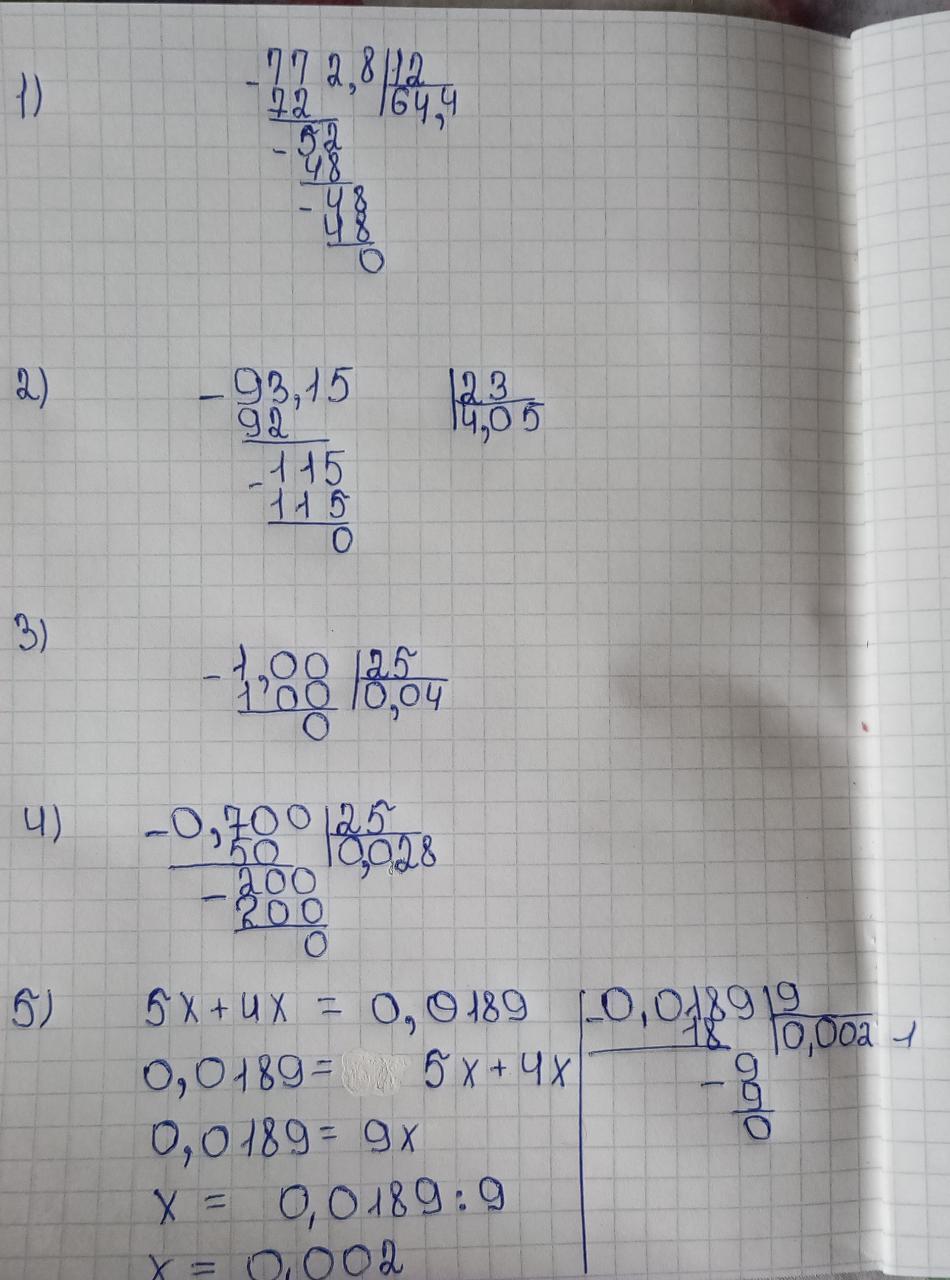 1) -772,8|12
72 64,4
-52
48
-48
48
0
2) -93,15 |23
92 4,05
-115
115
0
3)
-1,00|25
1 00 0,04
0
4) -0,700|25
50 0,028
-200
200
0
5) 5x+4x = 0,0189 -0,0189|9
18 0,002 1
0,0189= 5x+4x -9
9
0,0189= 9x 0
x = 0,0189:9
x = 0,002